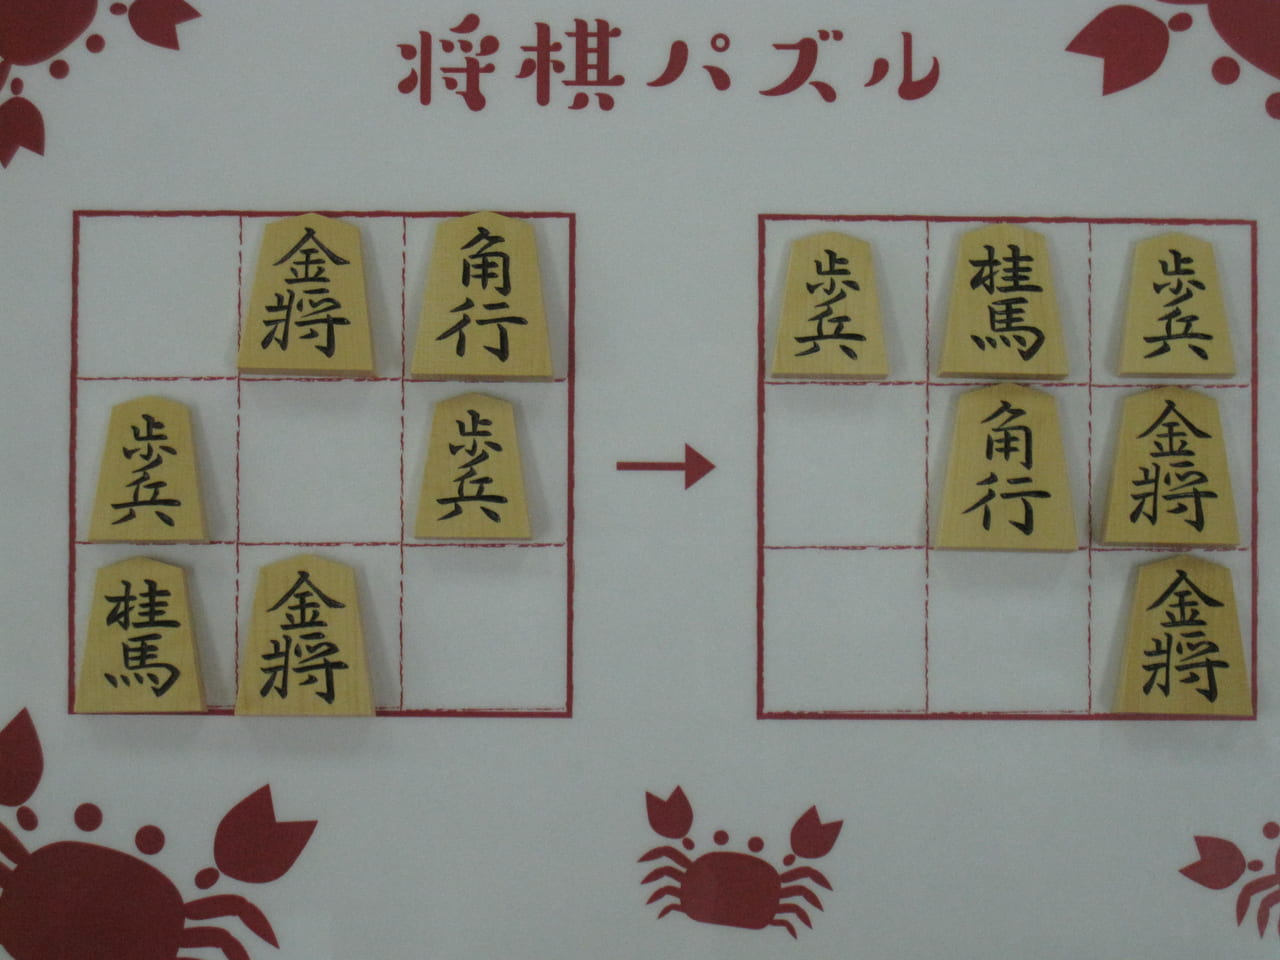 将棋パズル
金将 角行 歩兵 桂馬 歩兵
歩兵 歩兵 角行 金将
桂馬 金将 金将